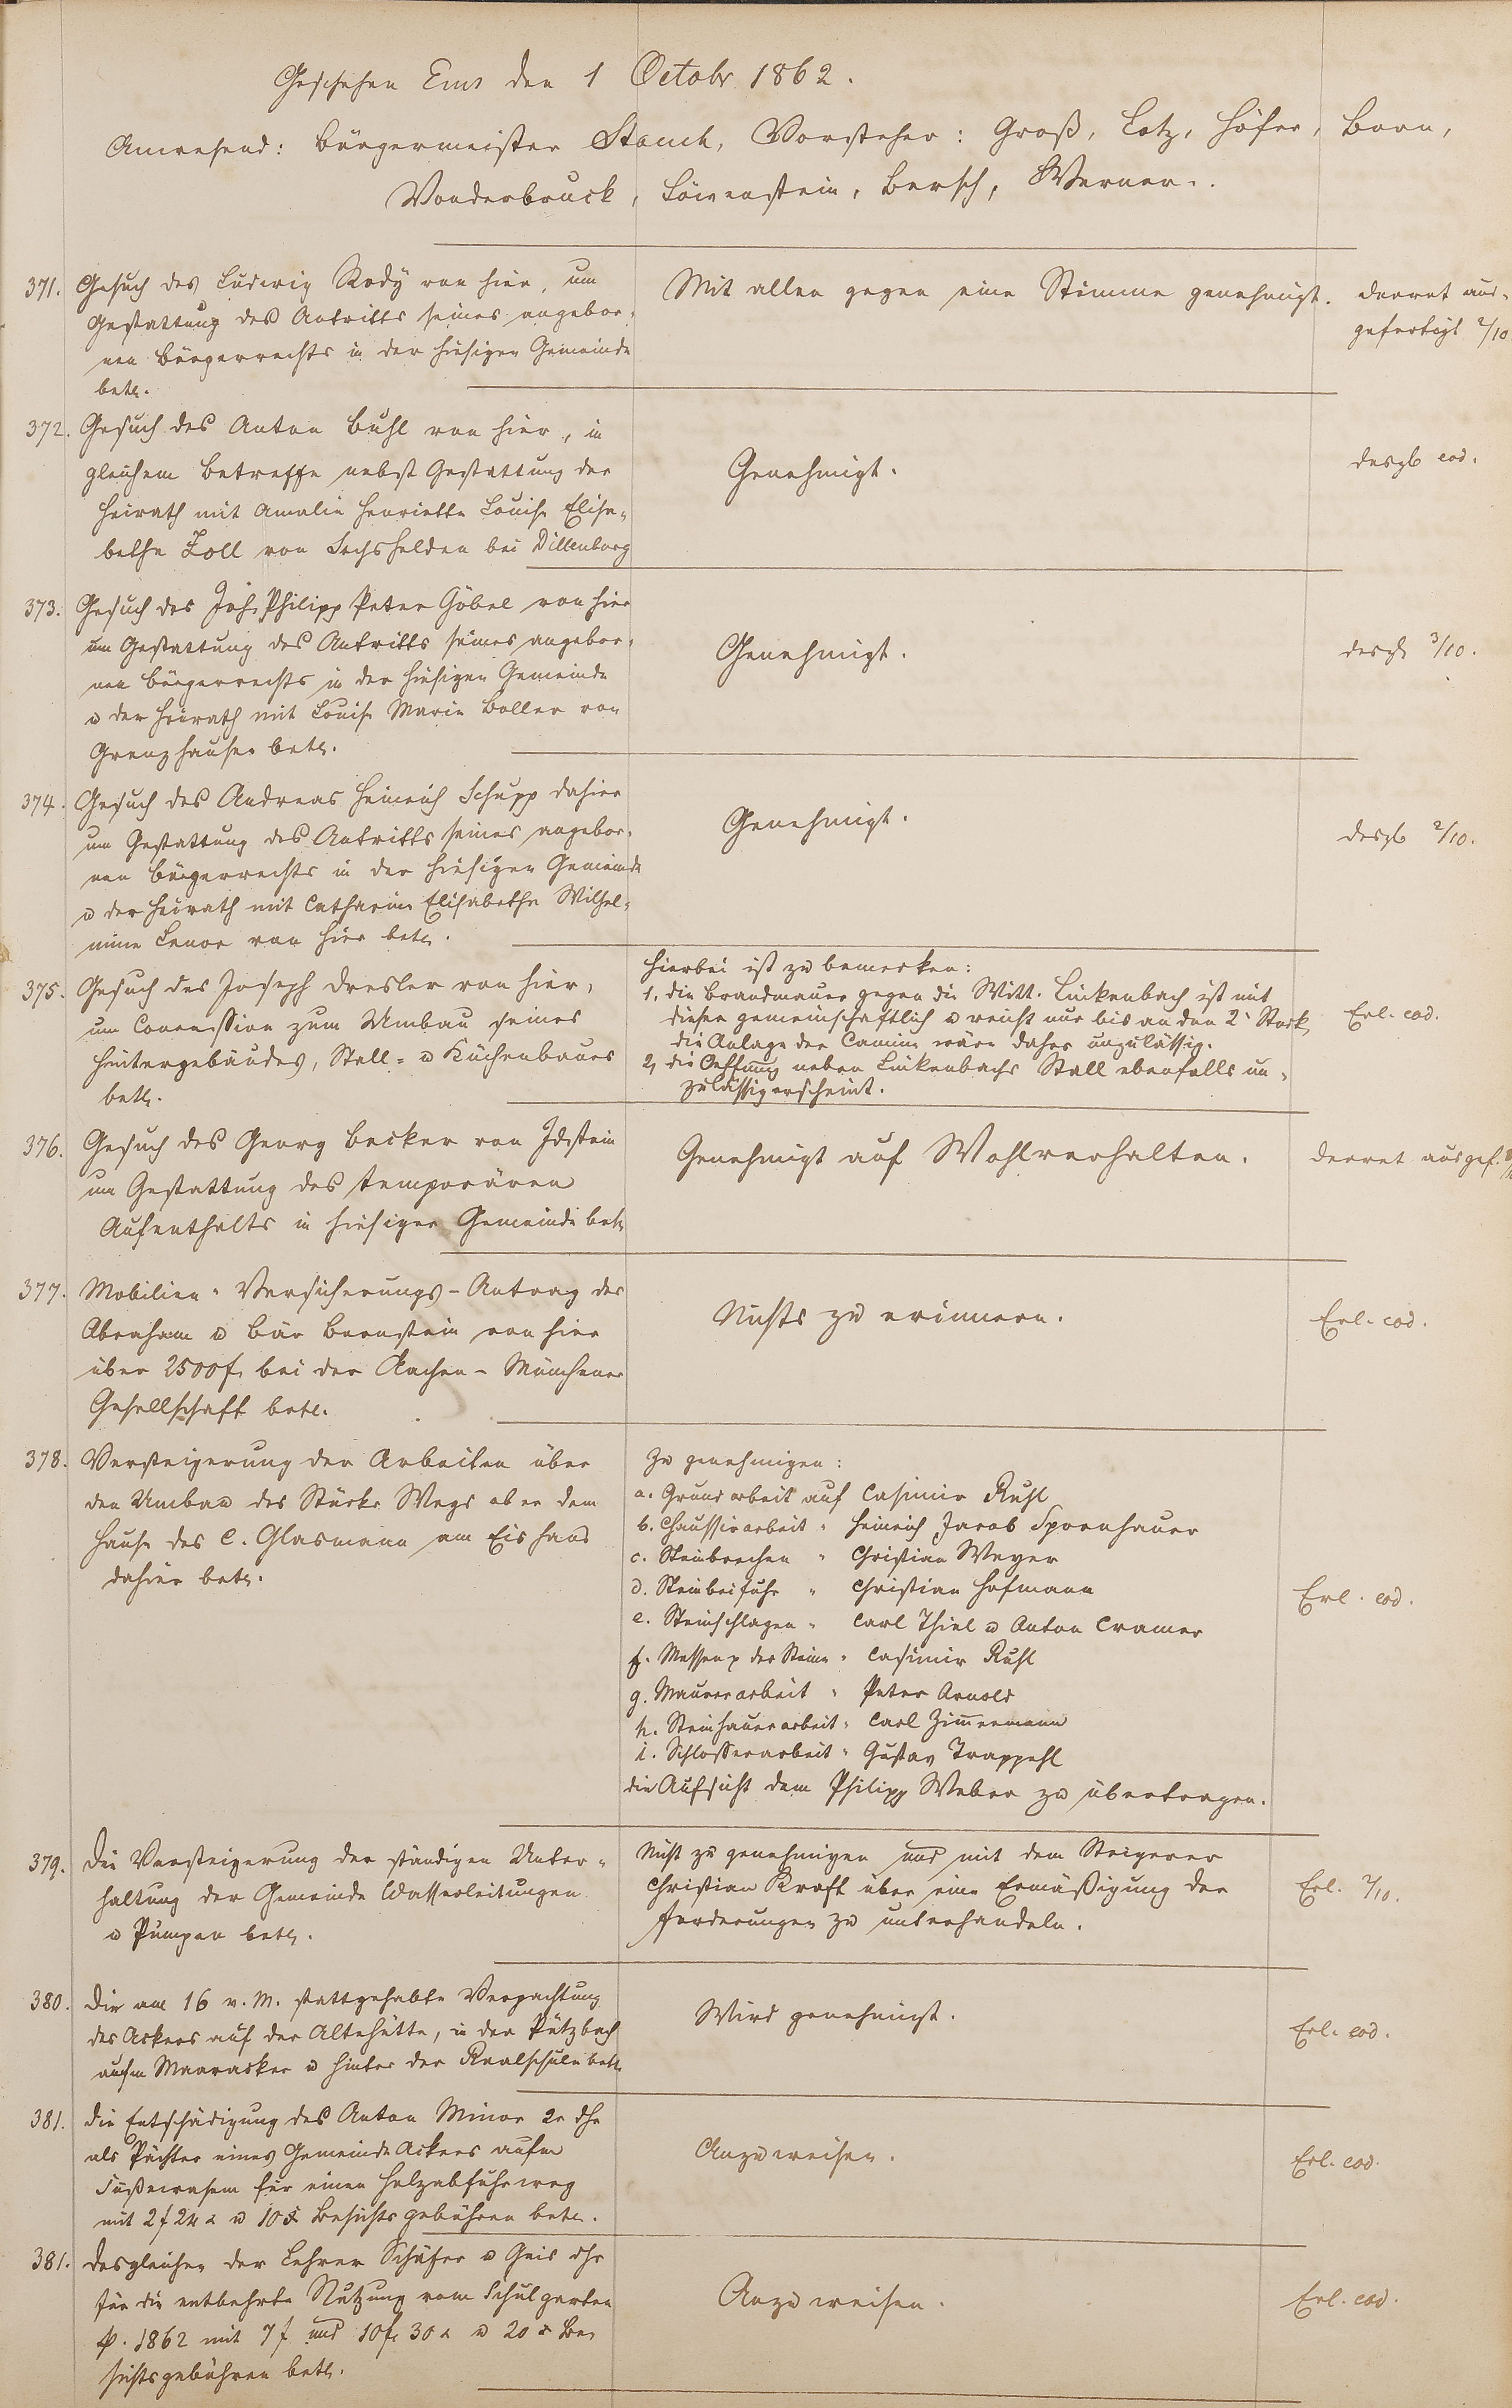 Geschehen Ems den 1 Octobr 1862.
Anwesend: Bürgermeister Stauch, Vorsteher: Groß, Lotz, Höfer, Born,
Vonderbruck, Löwenstein, Bersch, Werner.
371. Gesuch des Ludwig Rody von hier, um
Gestattung des Antritts seines angebor-
nen Bürgerrechts in der hiesigen Gemeinde
betr.
Mit allen gegen eine Stimme genehmigt.
Decret aus-
gefertigt 2/10
372. Gesuch des Anton Buhl von hier, in
gleichem Betreffe nebst Gestattung der
Heirath mit Amalie Henriette Louise Elisa-
bethe Zoll von Sechshelden bei Dillenburg
Genehmigt.
desgl eod.
373. Gesuch des Joh. Philipp Peter Göbel von hier
um Gestattung des Antritts seines angebor-
nen Bürgerrechts in der hiesigen Gemeinde
u der Heirath mit Louise Marie Boller von
Grenzhausen betr.
Genehmigt.
desgl 3/10.
374. Gesuch des Andreas Heinrich Schupp dahier
um Gestattung des Antritts seines angebor-
nen Bürgerrechts in der hiesigen Gemeinde
u der Heirath mit Catharine Elisabethe Wilhel-
mine Lenor von hier betr.
Genehmigt.
desgl 2/10.
375. Gesuch des Joseph Dresler von hier,
um Concession zum Umbau seines
Hintergebäudes, Stall- u Küchenbaues
betr.
Hierbei ist zu bemerken:
1, die Brandmauer gegen die Witt. Linkenbach ist mit
dieser gemeinschaftlich u reicht nur bis an den 2ᵗ Stock,
die Anlage der Camine wäre daher unzulässig.
2, die Oeffnung neben Linkenbachs Stall ebenfalls un-
zulässig erscheint.
Erl. eod.
376. Gesuch des Georg Becker von Idstein
um Gestattung des temporären
Aufenthalts in hiesiger Gemeinde betr
Genehmigt auf Wohlverhalten.
Decret ausgef.
377. Mobilien-Versicherungs-Antrag des
Abraham u Bär Bernstein von hier
über 2500 f. bei der Aachen-Münchener
Gesellschaft betr.
Nichts zu erinnern.
Erl. eod.
378. Versteigerung der Arbeiten über
den Umbau des Stücks Wegs ober dem
Hause des C. Glasmann am Eishaus
dahier betr.
Zu genehmigen:
a. Grundarbeit auf Casimir Ruhl
b. Chaussirarbeit " Heinrich Jacob Spornhauer
c. Steinbrechen " Christian Weyer
d. Steinbeifuhr " Christian Hofmann
e. Steinschlagen " Carl Thiel u Anton Cramer
f. Messen p der Steine " Casimir Ruhl
g. Maurerarbeit " Peter Arnold
h. Steinhauerarbeit " Carl Zimmermann
i. Schlosserarbeit " Gustav Trappehl
die Aufsicht dem Philipp Weber zu übertragen.
Erl. eod.
379. Die Versteigerung der ständigen Unter-
haltung der Gemeinde Wasserleitungen
u Pumpen betr.
Nicht zu genehmigen und mit dem Steigerer
Christian Kraft über eine Ermäßigung der
Forderungen zu unterhandeln.
Erl. 2/10.
380. Die am 16 v. M. stattgehabte Verpachtung
des Ackers auf der Altehütte, in der Pützbach
auf'm Maaracker u hinter der Realschule betr
Wird genehmigt.
Erl. eod.
381. Die Entschädigung des Anton Minor 2r dhr
als Pächter eines Gemeinde Ackers aufm
für einen Holzabfuhrweg
mit 2 f 24 x u 10 x Besichtsgebühren betr.
Anzuweisen.
Erl. eod.
381. Desgleichen der Lehrer Schäfer u Geis dhr
für die entbehrte Nutzung vom Schulgarten
p. 1862 mit 7 f und 10 f. 30 x u 20 x Be-
sichtsgebühren betr.
Anzuweisen.
Erl. eod.